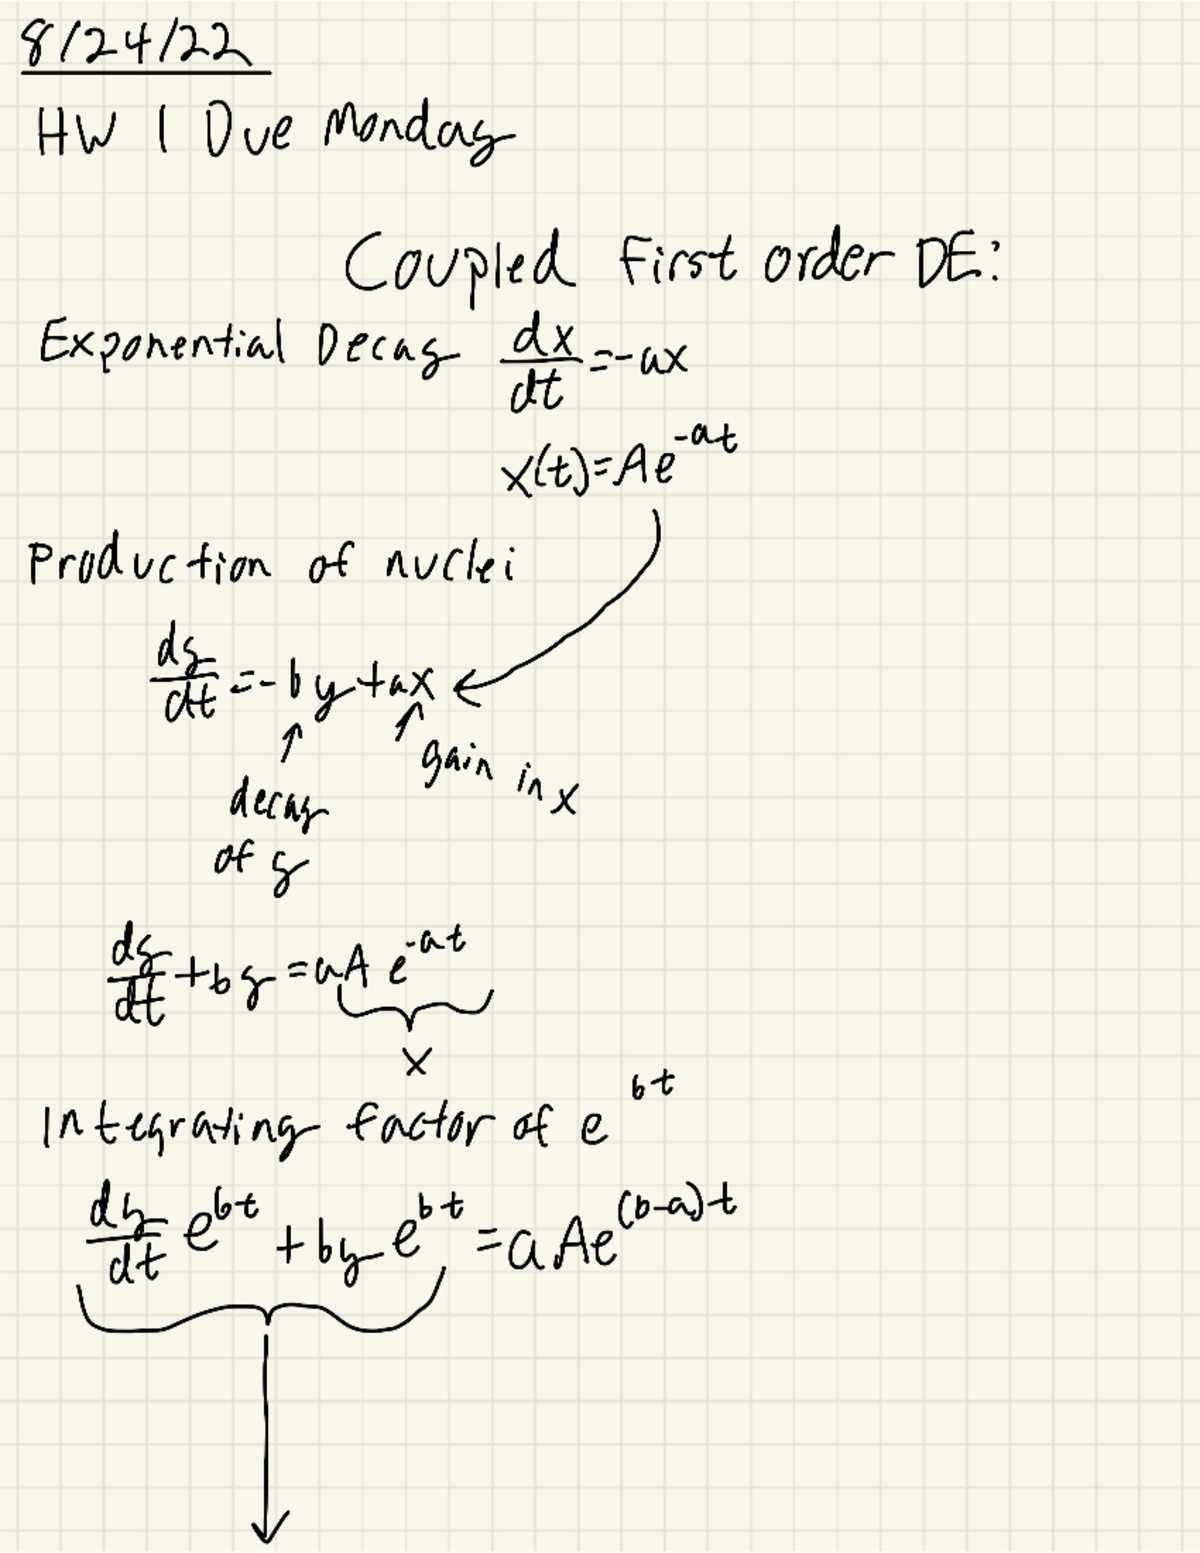 8/24/22
HW 1 Due Monday
Coupled First order DE:
Exponential Decay dx/dt = -ax
x(t)=Ae^-at
Production of nuclei
dy/dt = -by+ax
gain in x
decay
of y
dy/dt +by =aA e^-at
x
Integrating factor of e^bt
dy/dt e^bt +by e^bt =aAe^(b-a)t